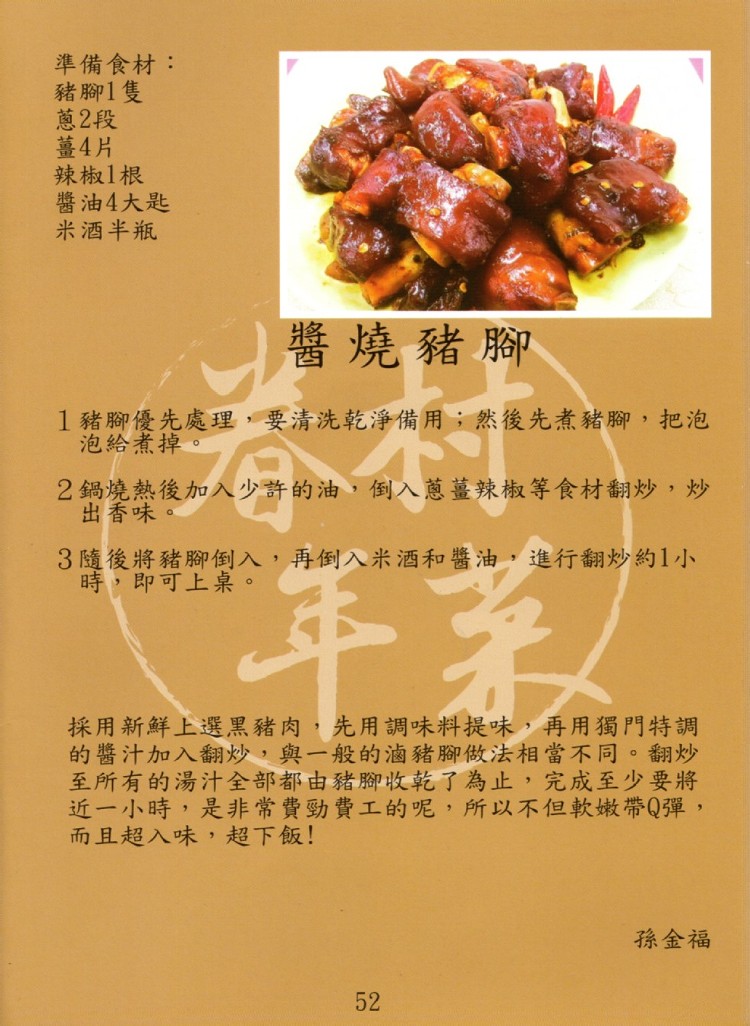 準備食材：
豬腳1隻
蔥2段
薑4片
辣椒1根
醬油4大匙
米酒半瓶
醬燒豬腳
眷村
年菜
1豬腳優先處理，要清洗乾淨備用；然後先煮豬腳，把泡
泡給煮掉。
2鍋燒熱後加入少許的油，倒入蔥薑辣椒等食材翻炒，炒
出香味。
3隨後將豬腳倒入，再倒入米酒和醬油，進行翻炒約1小
時，即可上桌。
採用新鮮上選黑豬肉，先用調味料提味，再用獨門特調
的醬汁加入翻炒，與一般的滷豬腳做法相當不同。翻炒
至所有的湯汁全部都由豬腳收乾了為止，完成至少要將
近一小時，是非常費勁費工的呢，所以不但軟嫩帶Q彈，
而且超入味，超下飯!
孫金福
52